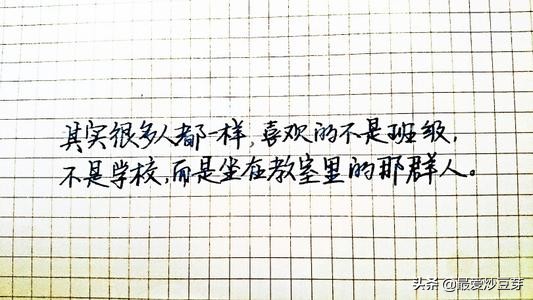 其实很多人都一样,喜欢的不是班级,
不是学校,而是坐在教室里的那群人。
头条 @最爱炒豆芽